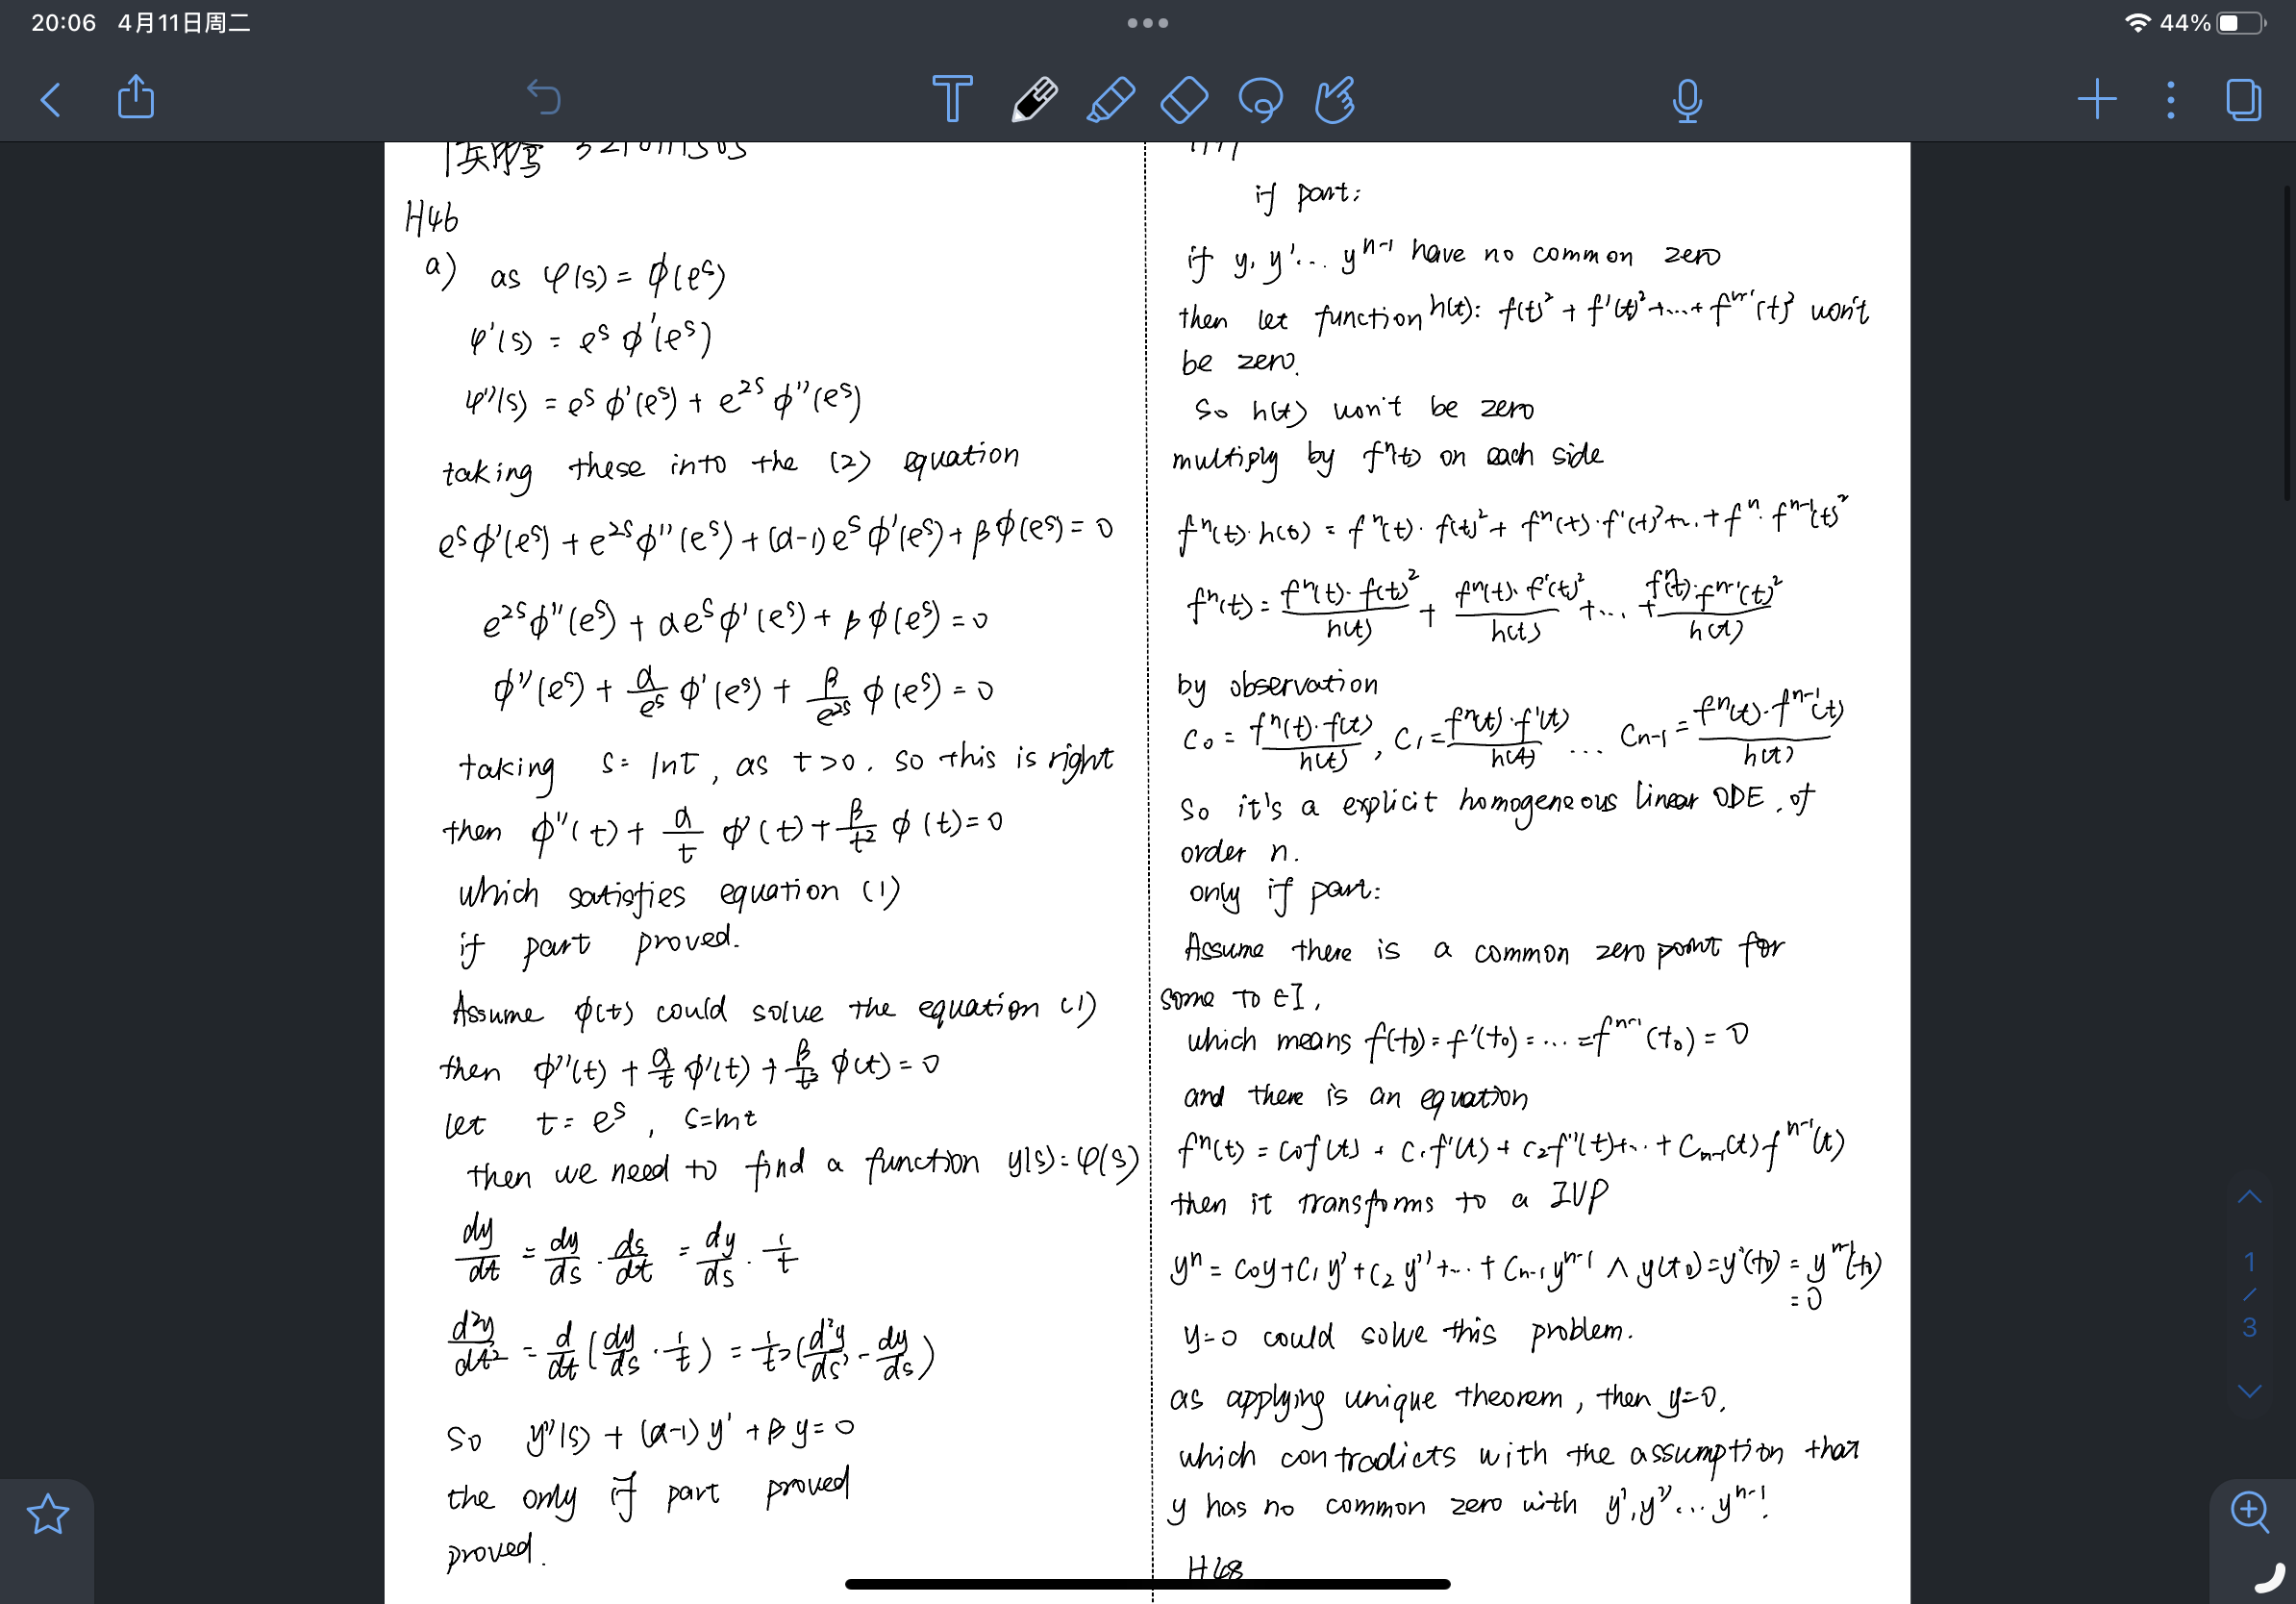 20:06 4月11日周二
44%
H46
a) as φ(s) = ϕ(e^s)
φ'(s) = e^s ϕ'(e^s)
φ''(s) = e^s ϕ'(e^s) + e^{2s} ϕ''(e^s)
taking these into the (2) equation
e^s ϕ'(e^s) + e^{2s} ϕ''(e^s) + (α-1) e^s ϕ'(e^s) + β ϕ(e^s) = 0
e^{2s} ϕ''(e^s) + α e^s ϕ'(e^s) + β ϕ(e^s) = 0
ϕ''(e^s) + α/e^s ϕ'(e^s) + β/e^{2s} ϕ(e^s) = 0
taking s = lnt, as t>0. so this is right
then ϕ''(t) + α/t ϕ'(t) + β/t² ϕ(t) = 0
which satisfies equation (1)
if part proved.
Assume ϕ(t) could solve the equation (1)
then ϕ''(t) + α/t ϕ'(t) + β/t² ϕ(t) = 0
let t = e^s, s=lnt
then we need to find a function y(s) = φ(s)
dy/dt = dy/ds · ds/dt = dy/ds · 1/t
d²y/dt² = d/dt (dy/ds · 1/t) = 1/t² (d²y/ds² - dy/ds)
So y''(s) + (α-1) y' + β y = 0
the only if part proved
proved.
if part:
if y, y' ... y^{n-1} have no common zero
then let function h(t): f(t)² + f'(t)² + ... + f^{n-1}(t)² won't
be zero.
So h(t) won't be zero
multiply by f^n(t) on each side
f^n(t)·h(t) = f^n(t)·f(t)² + f^n(t)·f'(t)² + ... + f^n·f^{n-1}(t)²
f^n(t) = f^n(t)·f(t)²/h(t) + f^n(t)·f'(t)²/h(t) + ... + f^n(t)·f^{n-1}(t)²/h(t)
by observation
c₀ = f^n(t)·f(t)/h(t), c₁ = f^n(t)·f'(t)/h(t) ... c_{n-1} = f^n(t)·f^{n-1}(t)/h(t)
So it's a explicit homogeneous linear ODE, of
order n.
only if part:
Assume there is a common zero point for
some t₀ ∈ I,
which means f(t₀) = f'(t₀) = ... = f^{n-1}(t₀) = 0
and there is an equation
f^n(t) = c₀f(t) + c₁f'(t) + c₂f''(t) + ... + c_{n-1}(t) f^{n-1}(t)
then it transforms to a IVP
y^n = c₀y + c₁y' + c₂y'' + ... + c_{n-1}y^{n-1} ∧ y(t₀) = y'(t₀) = y^{n-1}(t₀)
= 0
y=0 could solve this problem.
as applying unique theorem, then y=0,
which contradicts with the assumption that
y has no common zero with y', y'' ... y^{n-1}.
H48
1
/
3